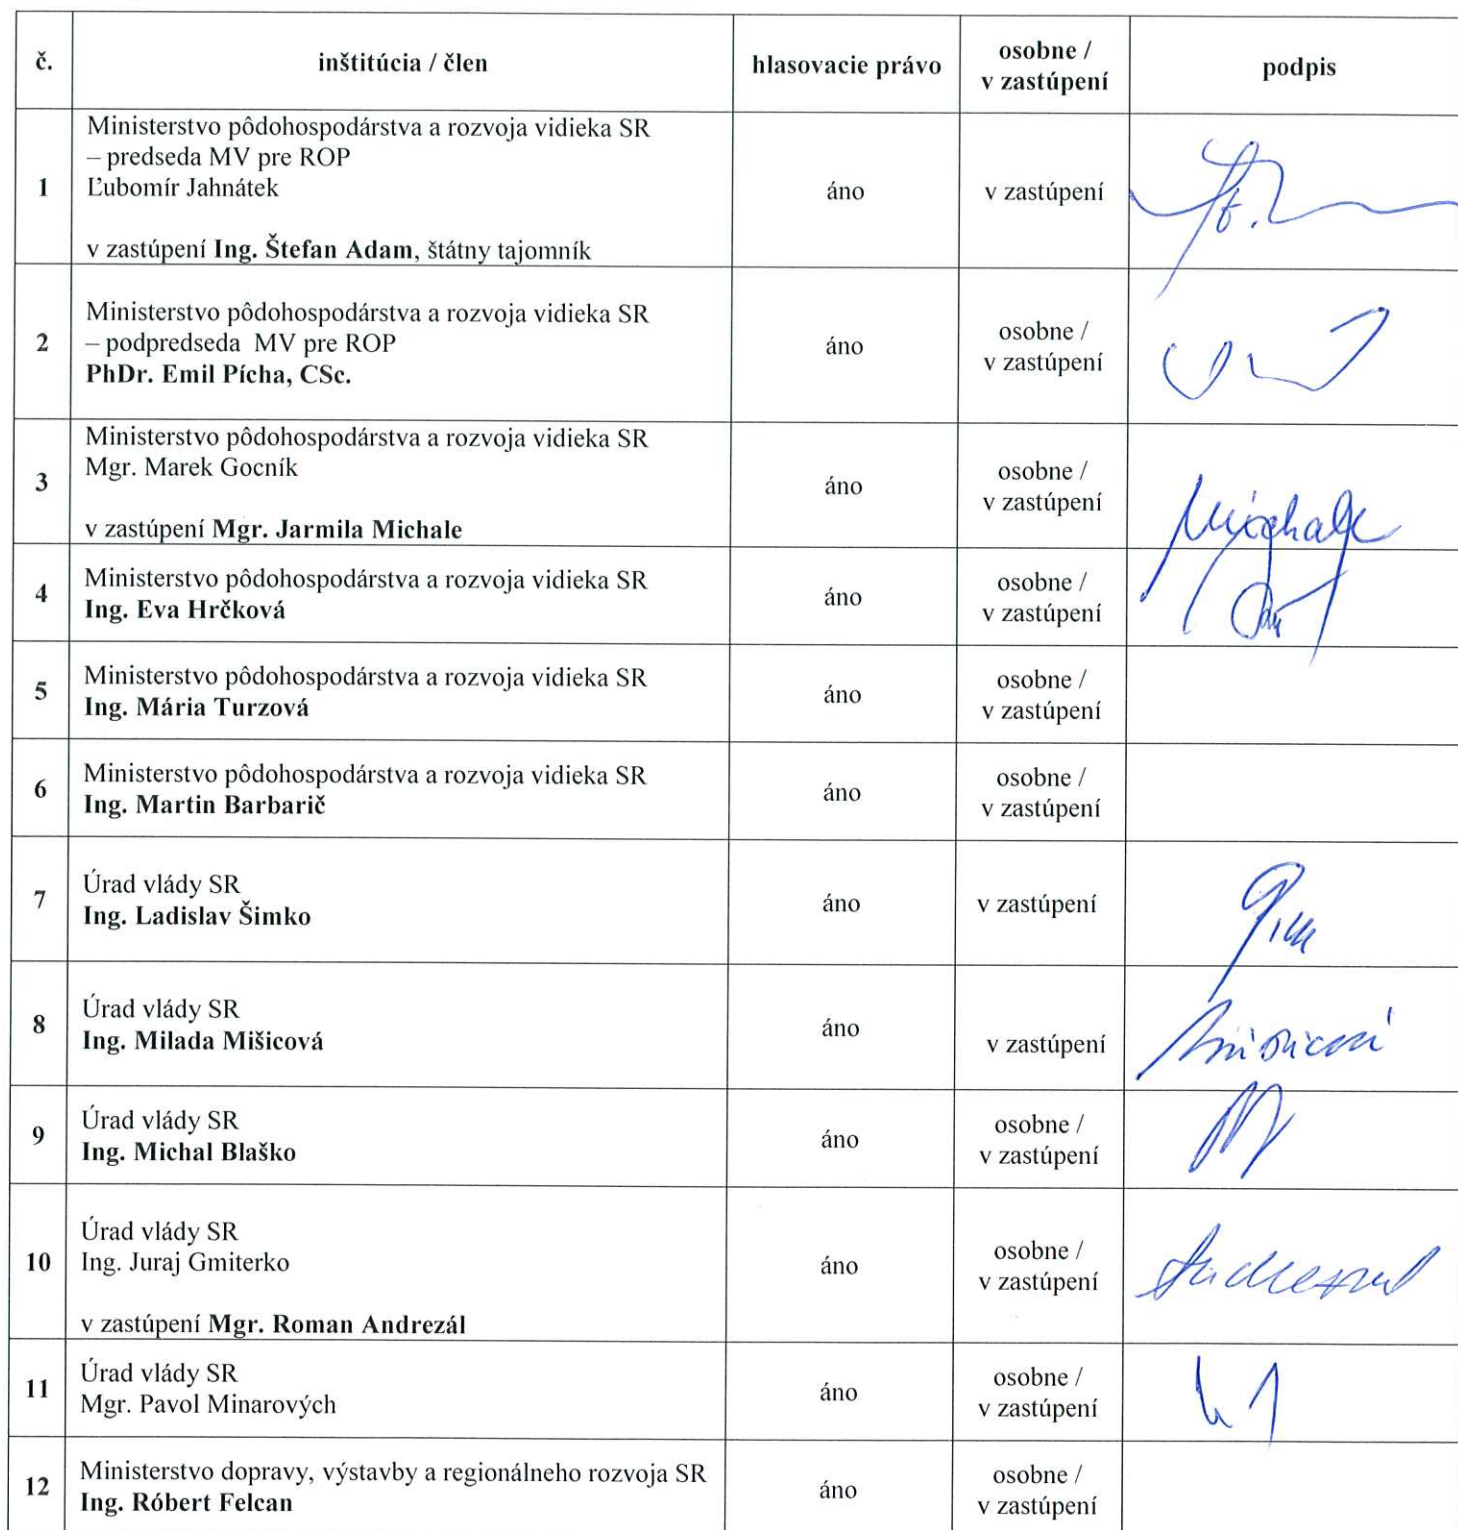 č.
inštitúcia / člen
hlasovacie právo
osobne /
v zastúpení
podpis
1
Ministerstvo pôdohospodárstva a rozvoja vidieka SR
– predseda MV pre ROP
Ľubomír Jahnátek
v zastúpení Ing. Štefan Adam, štátny tajomník
áno
v zastúpení
2
Ministerstvo pôdohospodárstva a rozvoja vidieka SR
– podpredseda MV pre ROP
PhDr. Emil Pícha, CSc.
áno
osobne /
v zastúpení
3
Ministerstvo pôdohospodárstva a rozvoja vidieka SR
Mgr. Marek Gocník
v zastúpení Mgr. Jarmila Michale
áno
osobne /
v zastúpení
Michale
4
Ministerstvo pôdohospodárstva a rozvoja vidieka SR
Ing. Eva Hrčková
áno
osobne /
v zastúpení
5
Ministerstvo pôdohospodárstva a rozvoja vidieka SR
Ing. Mária Turzová
áno
osobne /
v zastúpení
6
Ministerstvo pôdohospodárstva a rozvoja vidieka SR
Ing. Martin Barbarič
áno
osobne /
v zastúpení
7
Úrad vlády SR
Ing. Ladislav Šimko
áno
v zastúpení
8
Úrad vlády SR
Ing. Milada Mišicová
áno
v zastúpení
9
Úrad vlády SR
Ing. Michal Blaško
áno
osobne /
v zastúpení
10
Úrad vlády SR
Ing. Juraj Gmiterko
v zastúpení Mgr. Roman Andrezál
áno
osobne /
v zastúpení
11
Úrad vlády SR
Mgr. Pavol Minarových
áno
osobne /
v zastúpení
12
Ministerstvo dopravy, výstavby a regionálneho rozvoja SR
Ing. Róbert Felcan
áno
osobne /
v zastúpení